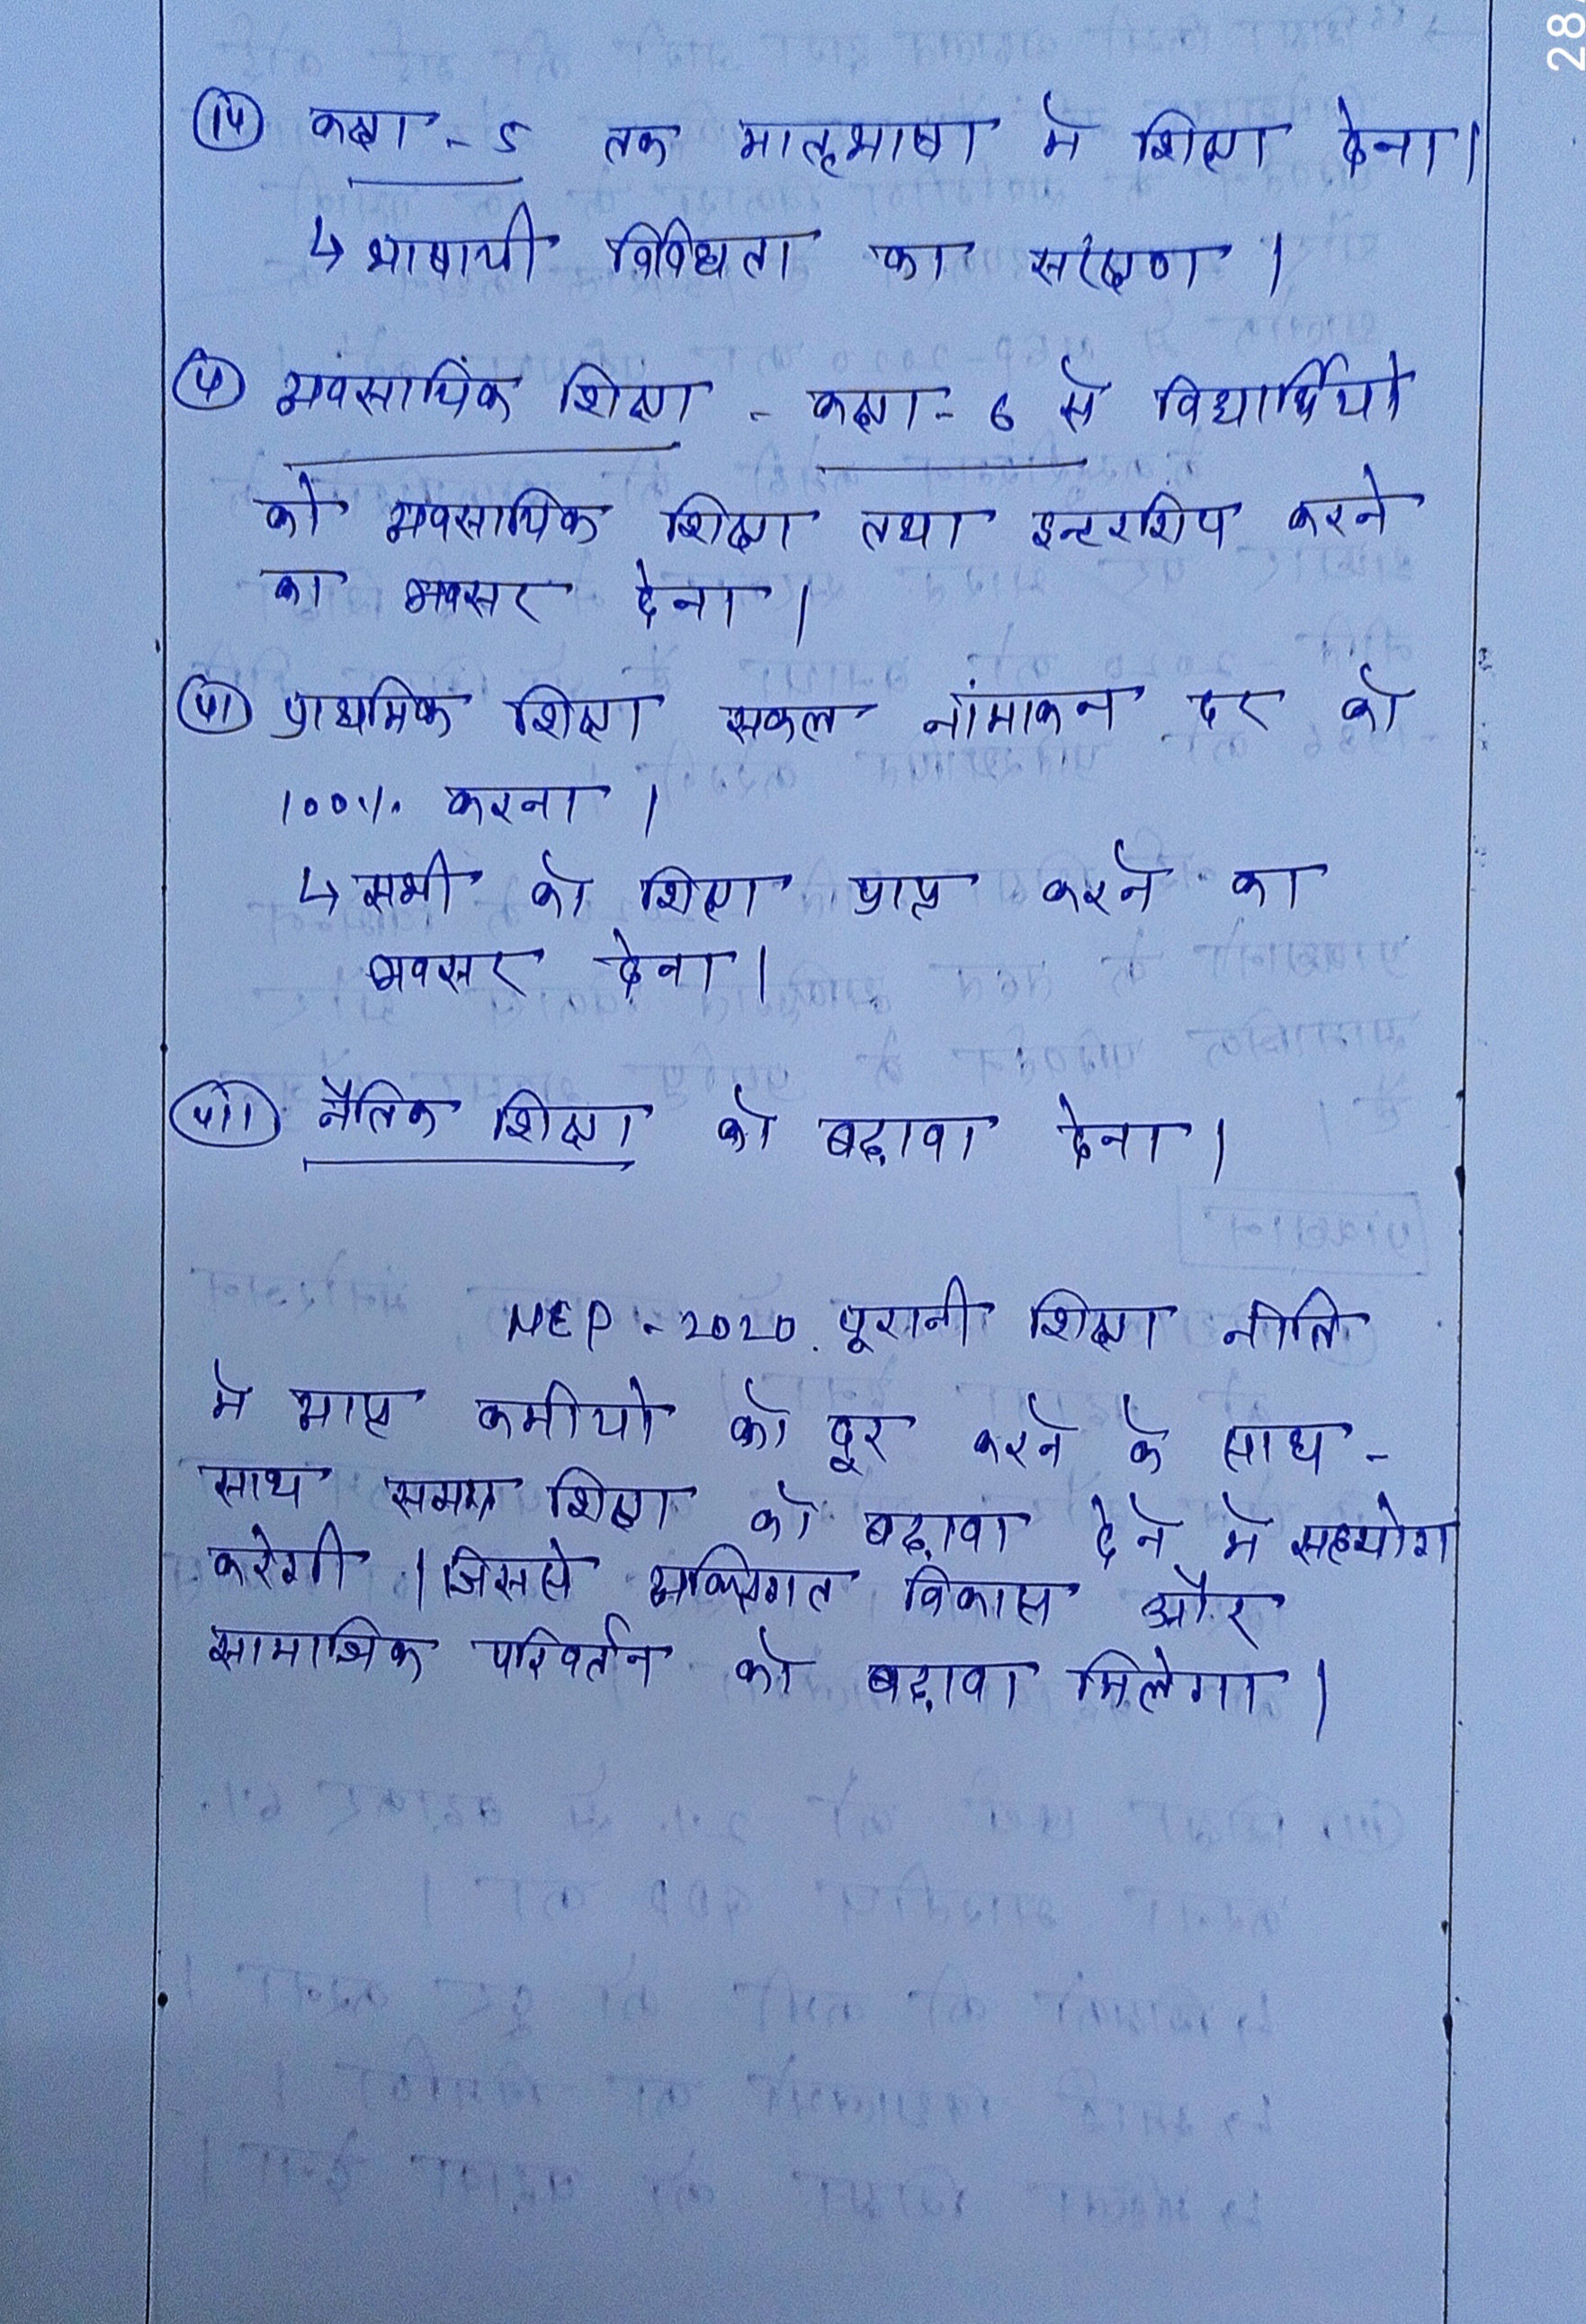 28
(iv) कक्षा - 5 तक मातृभाषा मे शिक्षा देना।
↳ भाषायी विविधता का संरक्षण।
(v) व्यवसायिक शिक्षा - कक्षा - 6 से विद्यार्थियो
को व्यवसायिक शिक्षा तथा इन्टरशिप करने
का अवसर देना।
(vi) प्राथमिक शिक्षा सकल नांमाकन दर को
100% करना।
↳ सभी को शिक्षा प्राप्त करने का
अवसर देना।
(vii) नैतिक शिक्षा को बढ़ावा देना।
NEP - 2020 पूरानी शिक्षा नीति
मे व्याप्त कमीयो को दूर करने के साथ -
साथ समग्र शिक्षा को बढ़ावा देने मे सहयोग
करेगी। जिससे व्यक्तिगत विकास और
सामाजिक परिवर्तन को बढ़ावा मिलेगा।